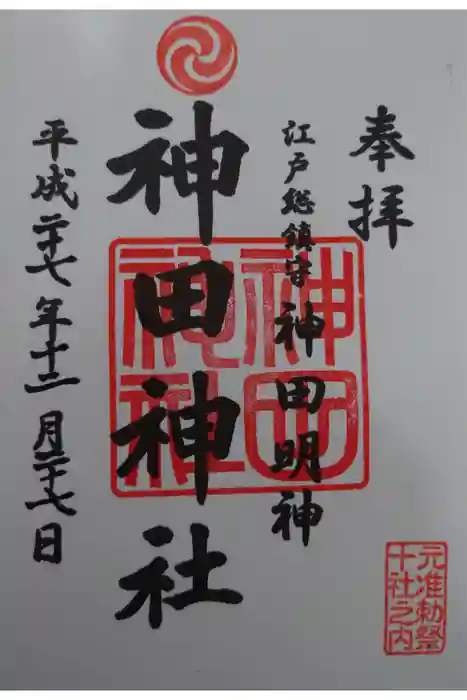 奉拝
江戸総鎮守 神田明神
神田神社
平成二十七年十二月二十七日
神田
神社
元准勅祭
十社之内